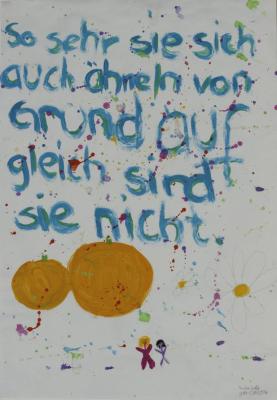 so sehr sie sich
auch ähneln von
Grund auf
gleich sind
sie nicht.